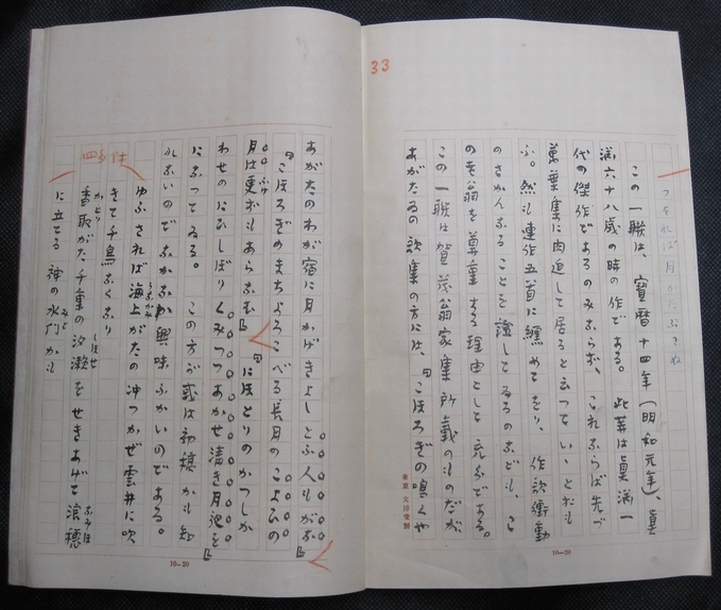 33
つゝれば月かたぶきぬ
この一聯は、寶暦十四年(明和元年)、眞
淵六十八歳の時の作である。此等は眞淵一
代の傑作であるのみならず、これならば先づ
萬葉集に肉迫して居ると云つていゝとおも
ふ。然も連作五首に纏めてをり、作歌衝動
のさかんなることを證してゐるなども、こ
の老翁を尊重する理由として充分である。
この一聯は賀茂翁家集所載のものだが、
あがたゐの歌集の方には、『こほろぎの鳴くや
東京 文房堂製
10—20
あがたのわが宿に月かげきよしとふ人もがな』
『こほろぎのまちよろこべる長月のこよひの
月は更ずもあらなむ』『にほとりのかつしか
わせのにひしぼりくみつつあかせ清き月夜を』
になつてゐる。この方が或は初稿かも知
れないのでなかなか興味ふかいのである。
ゆふされば海上がたの沖つかぜ雲井に吹
うなかみ
きて千鳥なくなり
香取がた千重の汐瀬をせきあげて浪穂
かとり
しほせ
なみほ
に立てる神の水門かも
みと
10—20